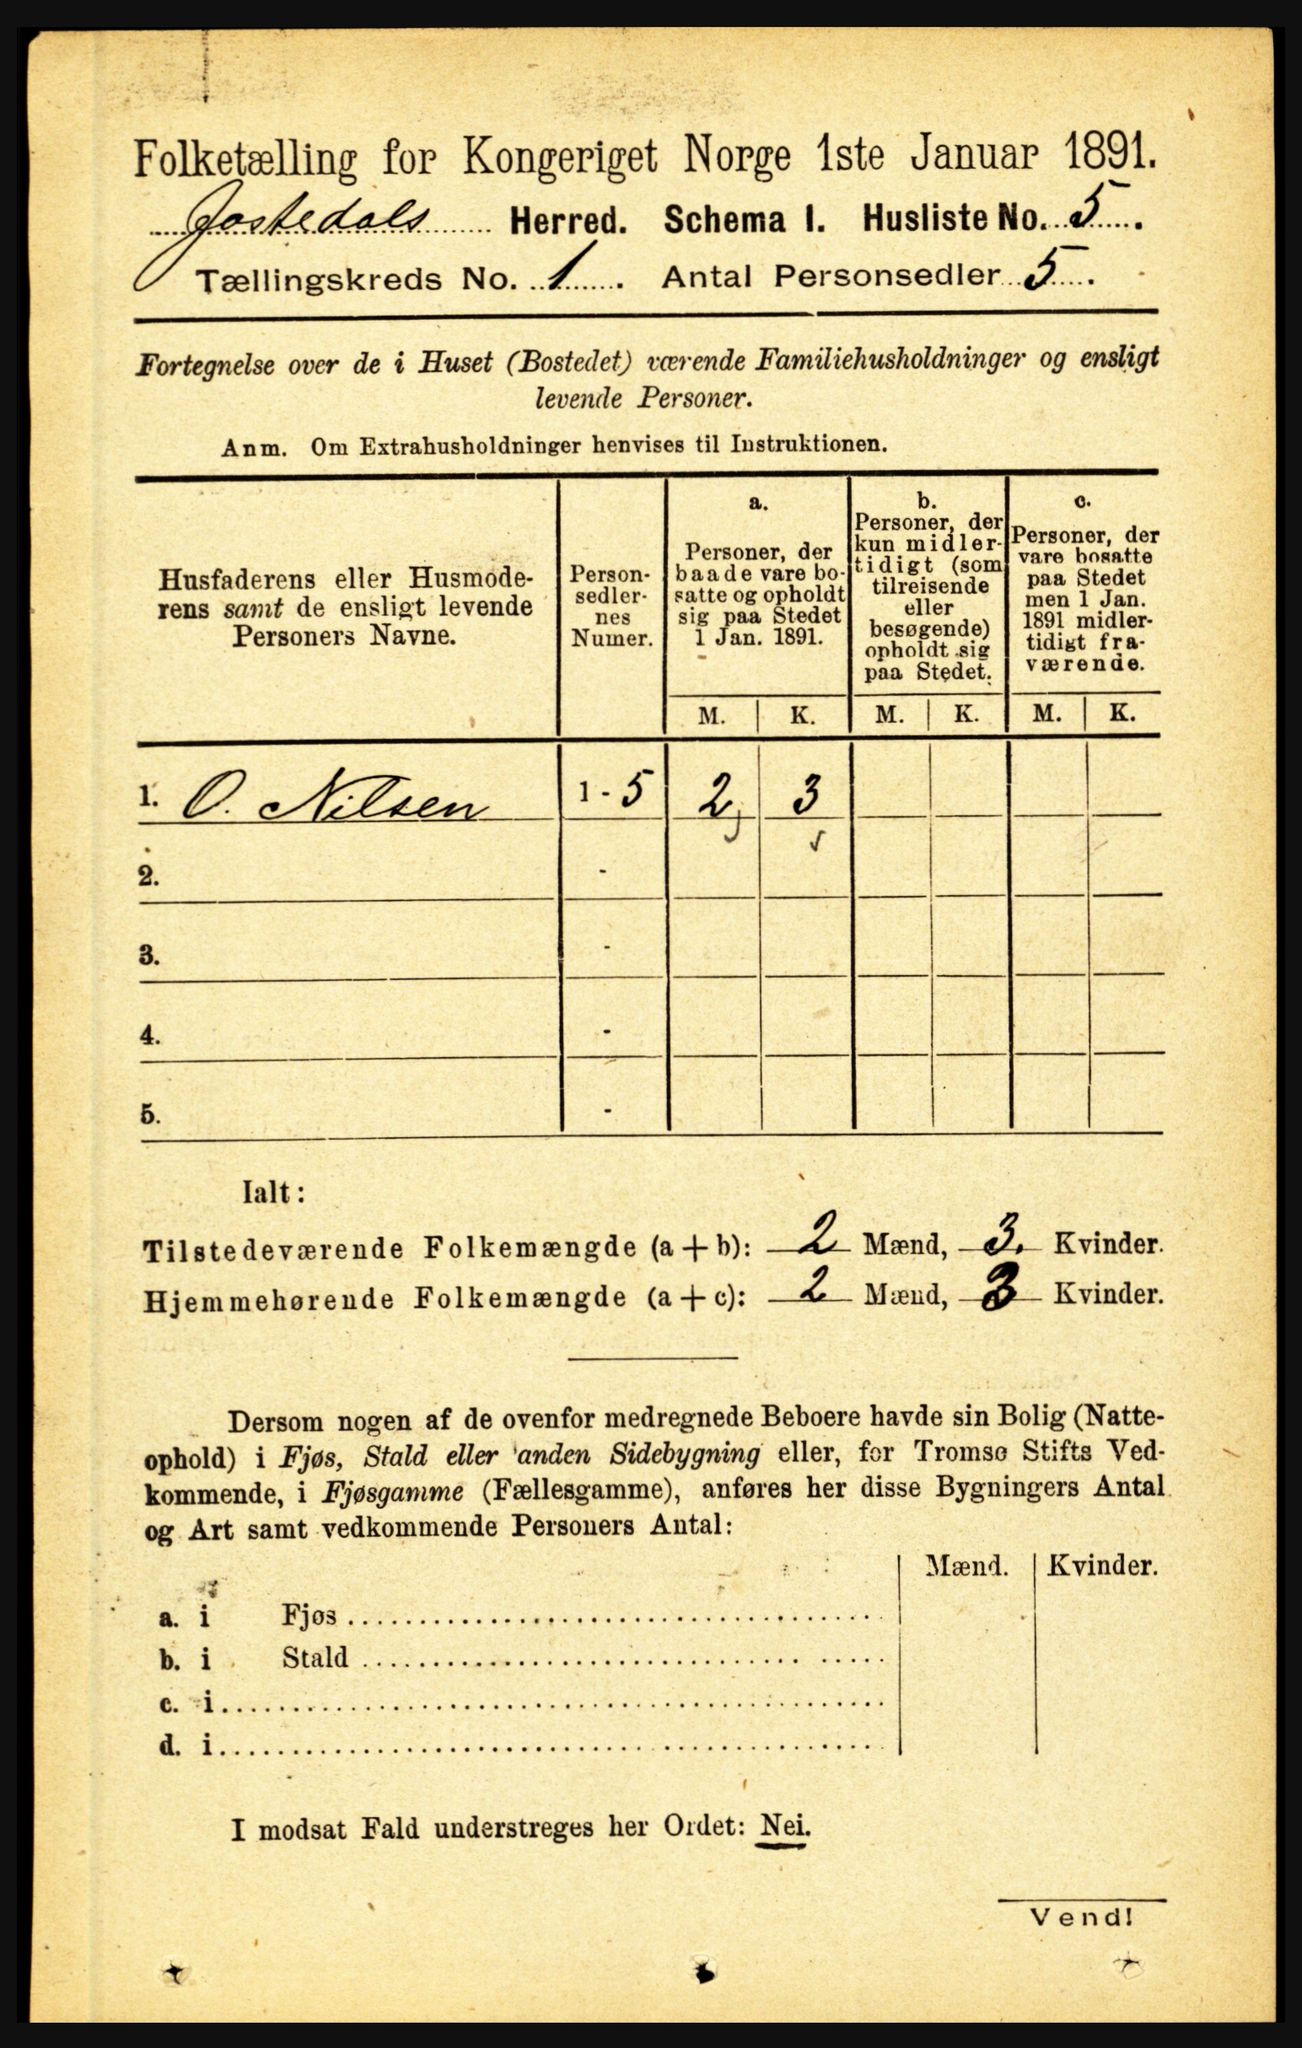 Folketælling for Kongeriget Norge 1ste Januar 1891.
Jostedals Herred. Schema I. Husliste No. 5.
Tællingskreds No. 1. Antal Personsedler 5.
Fortegnelse over de i Huset (Bostedet) værende Familiehusholdninger og ensligt
levende Personer.
Anm. Om Extrahusholdninger henvises til Instruktionen.
Husfaderens eller Husmode-
rens samt de ensligt levende
Personers Navne.
Person-
sedler-
nes
Numer.
a.
Personer, der
baade vare bo-
satte og opholdt
sig paa Stedet
1 Jan. 1891.
b.
Personer, der
kun midler-
tidigt (som
tilreisende
eller
besøgende)
opholdt sig
paa Stedet.
c.
Personer, der
vare bosatte
paa Stedet
men 1 Jan.
1891 midler-
tidigt fra-
værende.
M. K. M. K. M. K.
1. O. Nilsen 1 - 5 2 3
2. -
3. -
4. -
5. -
Ialt:
Tilstedeværende Folkemængde (a + b): 2 Mænd, 3. Kvinder.
Hjemmehørende Folkemængde (a + c): 2 Mænd, 3 Kvinder.
Dersom nogen af de ovenfor medregnede Beboere havde sin Bolig (Natte-
ophold) i Fjøs, Stald eller anden Sidebygning eller, for Tromsø Stifts Ved-
kommende, i Fjøsgamme (Fællesgamme), anføres her disse Bygningers Antal
og Art samt vedkommende Personers Antal:
Mænd. Kvinder.
a. i Fjøs
b. i Stald
c. i
d. i
I modsat Fald understreges her Ordet: Nei.
Vend!